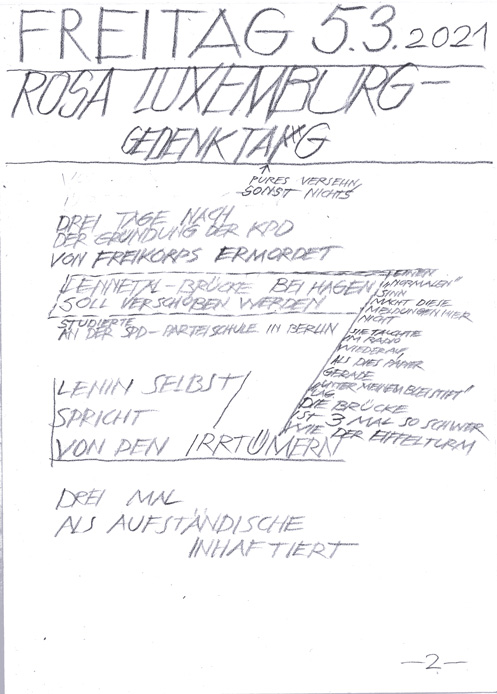 FREITAG 5.3.2021
ROSA LUXEMBURG-
GEDENKTAG
↑
PURES VERSEHN,
SONST NICHTS
DREI TAGE NACH
DER GRÜNDUNG DER KPD
VON FREIKORPS ERMORDET
LENNETAL-BRÜCKE BEI HAGEN
SOLL VERSCHOBEN WERDEN
STUDIERTE
AN DER SPD-PARTEISCHULE IN BERLIN
LENIN SELBST
SPRICHT
VON DEN IRRTÜMERN
"NORMALEN"
SINN
MACHT DIESE
MELDUNGEN HIER
NICHT
SIE TAUCHTE
IM RADIO
WIEDER AUF,
ALS DIES PAPIER
GERADE
"UNTER MEINEM BLEISTIFT"
LAG
DIE BRÜCKE
IST 3 MAL SO SCHWER
WIE DER EIFFELTURM
DREI MAL
ALS AUFSTÄNDISCHE
INHAFTIERT
-2-